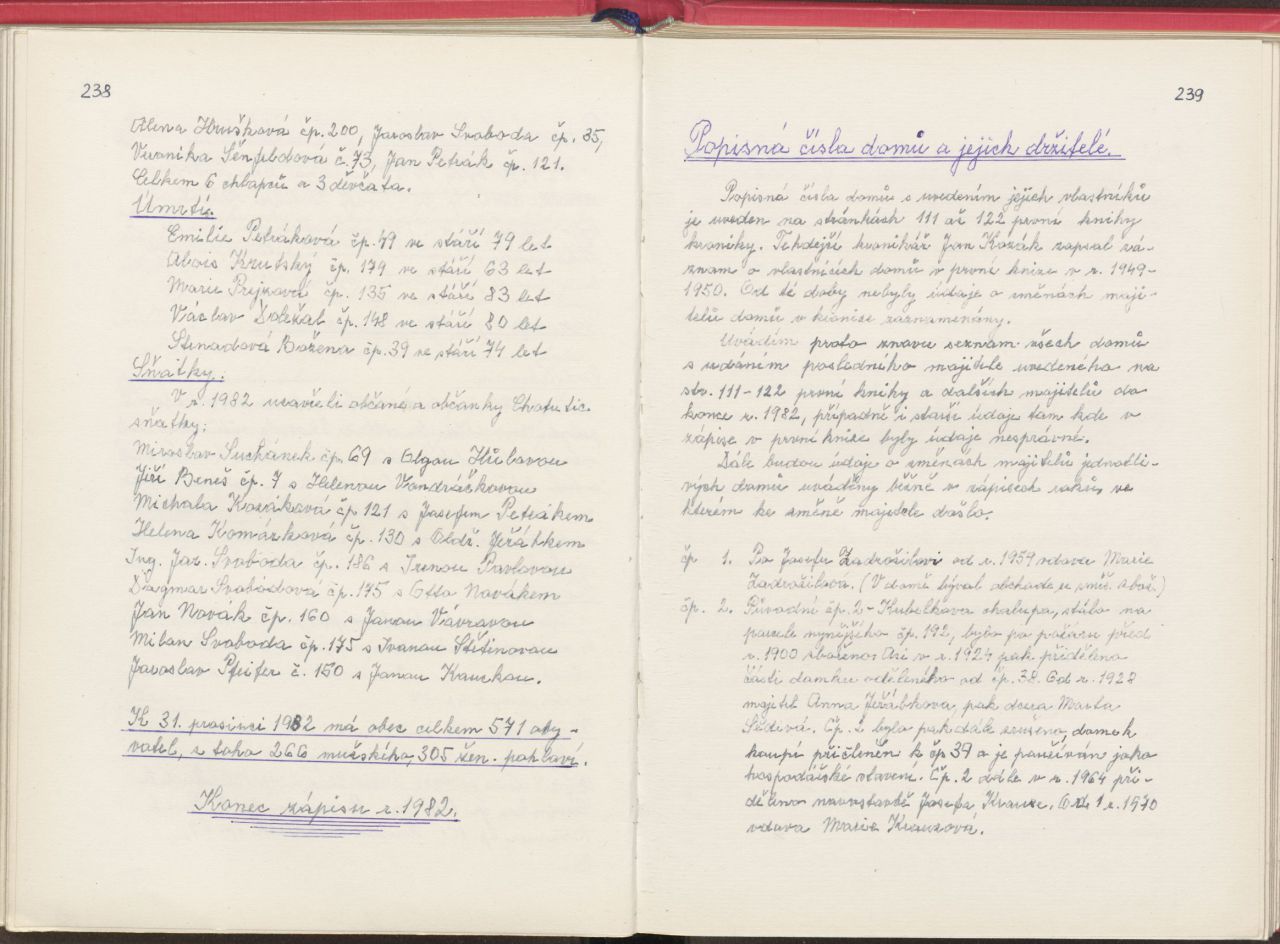 238
Alena Hrušková čp. 200, Jaroslav Svoboda čp. 35,
Veronika Šenfeldová č. 73, Jan Petrák čp. 121.
Celkem 6 chlapců a 3 děvčata.
Úmrtí.
Emilie Petráková čp. 49 ve stáří 79 let
Alois Krutský čp. 179 ve stáří 63 let
Marie Prejzová čp. 135 ve stáří 83 let
Václav Doležal čp. 148 ve stáří 80 let
Božena čp. 39 ve stáří 74 let
Sňatky:
V r. 1982 uzavřeli občané a občanky Chotutic
sňatky:
Miroslav Suchánek čp. 69 s Olgou
Jiří Beneš čp. 7 s Helenou Vondráčkovou
Michala Kozáková čp 121 s Josefem Petrákem
Helena Komárková čp. 130 s Oldř. Jeřábkem
Ing. Jar. Svoboda čp. 186 s Irenou Pavlovou
Dagmar Svobodová čp. 175 s Otto Novákem
Jan Novák čp. 160 s Janou Vávravou
Milan Svoboda čp. 175 s Ivanou Štětinovou
Jaroslav Pfeifer č. 150 s Janou
K 31. prosinci 1982 má obec celkem 571 oby-
vatel, z toho 266 mužského, 305 žen. pohlaví.
Konec zápisu r. 1982.
239
Popisná čísla domů a jejich držitelé.
Popisná čísla domů s uvedením jejich vlastníků
je uveden na stránkách 111 až 122 první knihy
kroniky. Tehdejší kronikář Jan Kozák zapsal zá-
znam o vlastnících domů v první knize v r. 1949-
1950. Od té doby nebyly údaje o změnách maji-
telů domů v kronice zaznamenány.
Uvádím proto znovu seznam všech domů
s udáním posledního majitele uvedeného na
str. 111-122 první knihy a dalších majitelů do
konce r. 1982, případně i starší údaje tam kde v
zápise v první knize byly údaje nesprávné.
Dále budou údaje o změnách majitelů jednotli-
vých domů uváděny běžně v zápisech roků, ve
kterém ke změně majitele došlo.
čp 1. Po Josefu Zadražilovi od r. 1959 vdova Marie
Zadražilová. (V domě býval obchod se smíš. zbož.)
čp. 2. Původní čp. 2 - Kubelkova chalupa, stálo na
parcele nynějšího čp. 192, bylo po požáru před
r. 1900 zbořeno. Asi v r. 1924 pak přiděleno
části domku odděleného od čp. 38. Od r. 1928
majitel Anna Jeřábkova, pak dcera Marta
Šedivá. Čp. 2 bylo pak zrušeno, domek
koupí přičleněn k čp 39 a je používán jako
hospodářské stavení. Čp. 2 dále v r. 1964 při-
děleno novostavbě Josefa Krause. Od r. 1970
vdova Marie Krauzová.